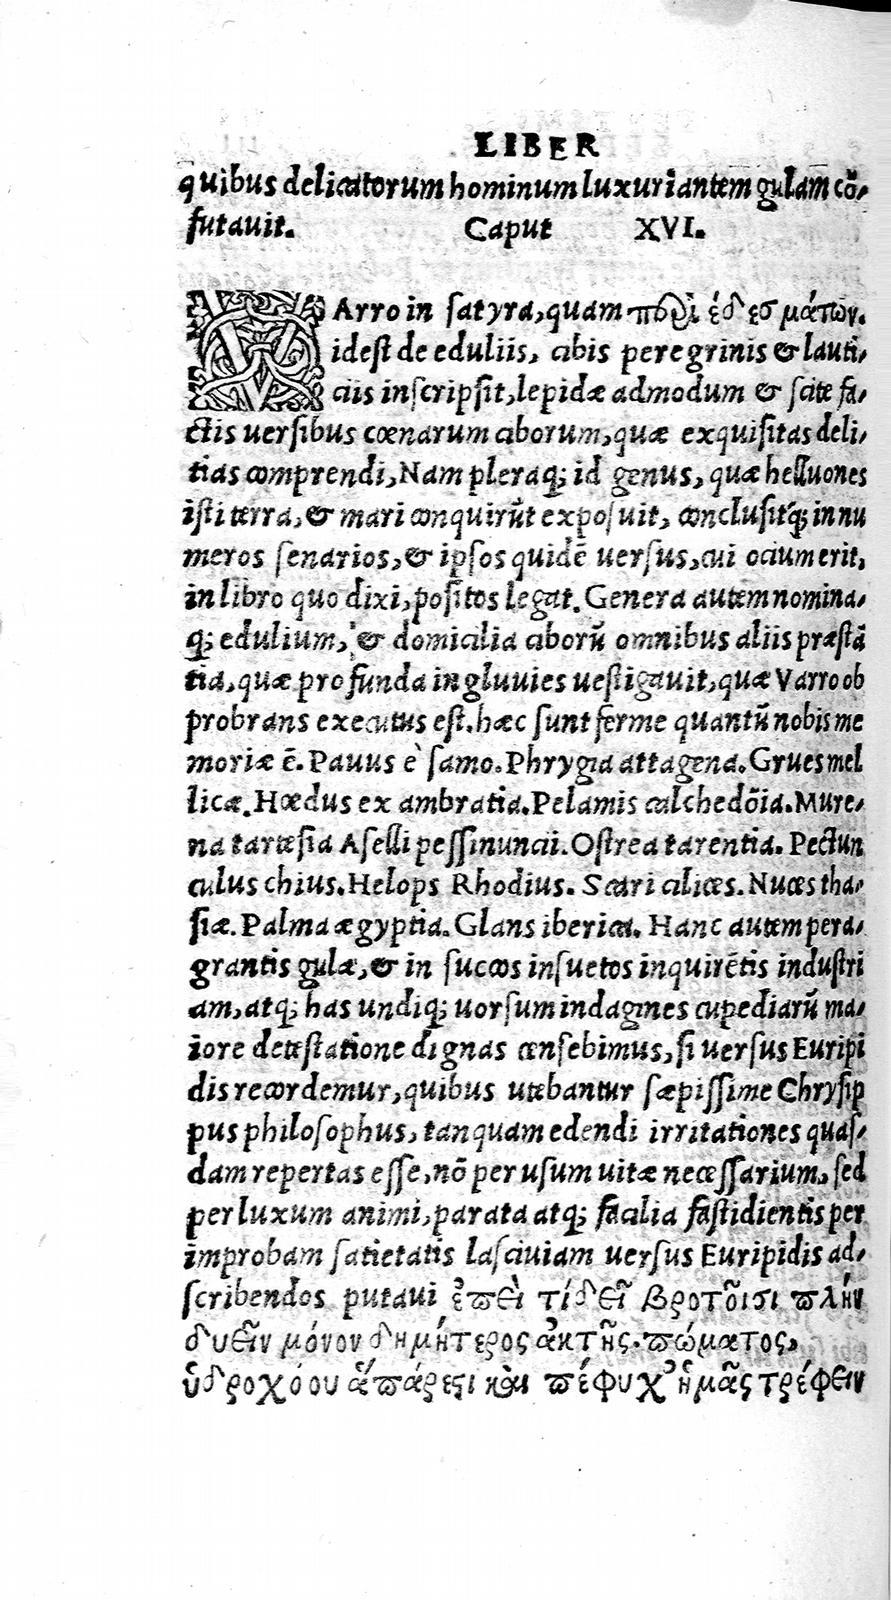 LIBER
quibus delicatorum hominum luxuriantem gulam cõ,
futauit. Caput XVI.
VArro in satyra, quam περὶ ἐδεσμάτων.
idest de eduliis, cibis peregrinis & lauti,
ciis inscripsit, lepidæ admodum & scite fa,
ctis uersibus cœnarum ciborum, quæ exquisitas deli,
tias comprendi, Nam pleraq; id genus, quæ helluones
isti terra, & mari conquirũt exposuit, conclusitq́; in nu
meros senarios, & ipsos quidẽ uersus, cui ocium erit,
in libro quo dixi, positos legat. Genera autem nomina,
q; edulium, & domicilia ciborũ omnibus aliis præstã
tia, quæ profunda ingluuies uestigauit, quæ Varro ob
probrans executus est. hæc sunt ferme quantũ nobis me
moriæ ẽ. Pauus è samo. Phrygia attagena. Grues mel
licæ. Hœdus ex ambratia. Pelamis calchedõia. Mure,
na tartesia Aselli pessinuncii. Ostrea tarentia. Pectun
culus chius. Helops Rhodius. Scari cilices. Nuces tha,
siæ. Palma ægyptia. Glans iberica. Hanc autem pera,
grantis gulæ, & in succos insuetos inquirẽtis industri
am, atq; has undiq; uorsum indagines cupediarũ ma,
iore detestatione dignas censebimus, si uersus Euripi
dis recordemur, quibus utebantur sæpissime Chrysip
pus philosophus, tanquam edendi irritationes quas,
dam repertas esse, nõ per usum uitæ necessarium, sed
per luxum animi, parata atq; facilia fastidientis per
improbam satietatis lasciuiam uersus Euripidis ad,
scribendos putaui ἐπεὶ τί δεῖ βροτοῖσι πλήν
δυεῖν μόνον δημήτερος ἀκτῆς. πώματος,
ὑδροχόου ἅ πάρεστι καὶ πέφυχ᾽ ἡμᾶς τρέφειν